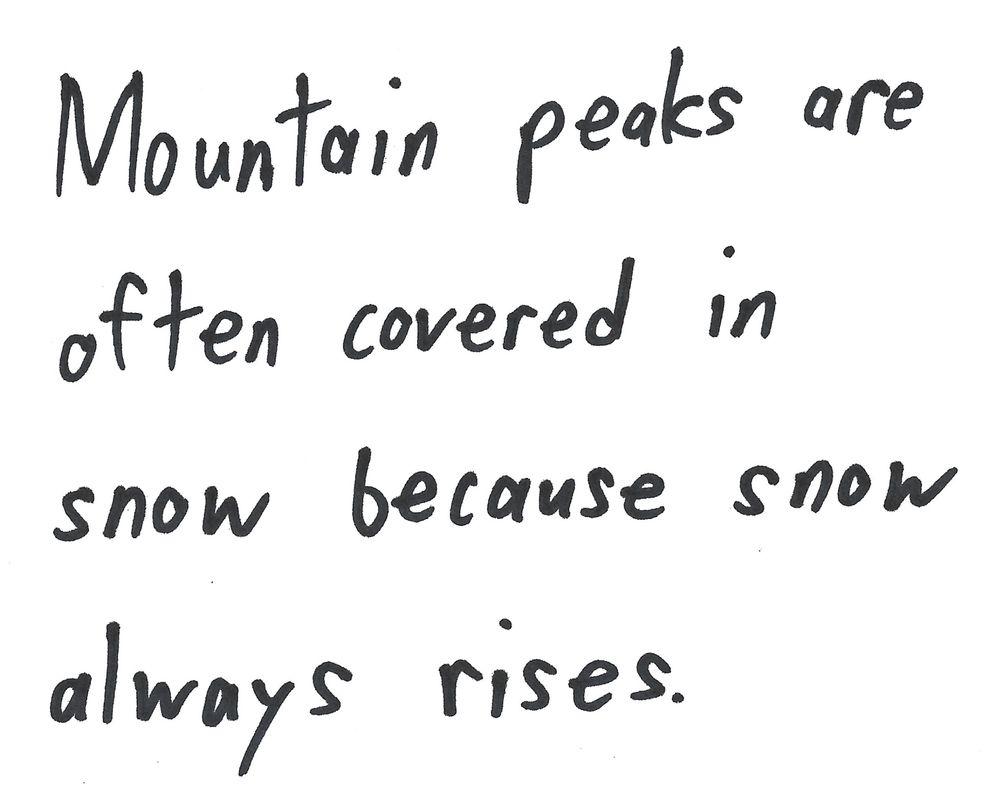 Mountain peaks are
often covered in
snow because snow
always rises.